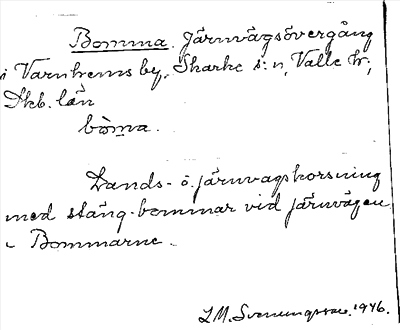 Bomma. Järnvägsövergång
i Varnhems by, Skarke s:n, Valle hr,
Skb. län
bòma.
Lands- o. järnvagskorsning
med stäng-bommar vid järnvägen
~ Bommarne.
L.M. Svenungsson. 1946.